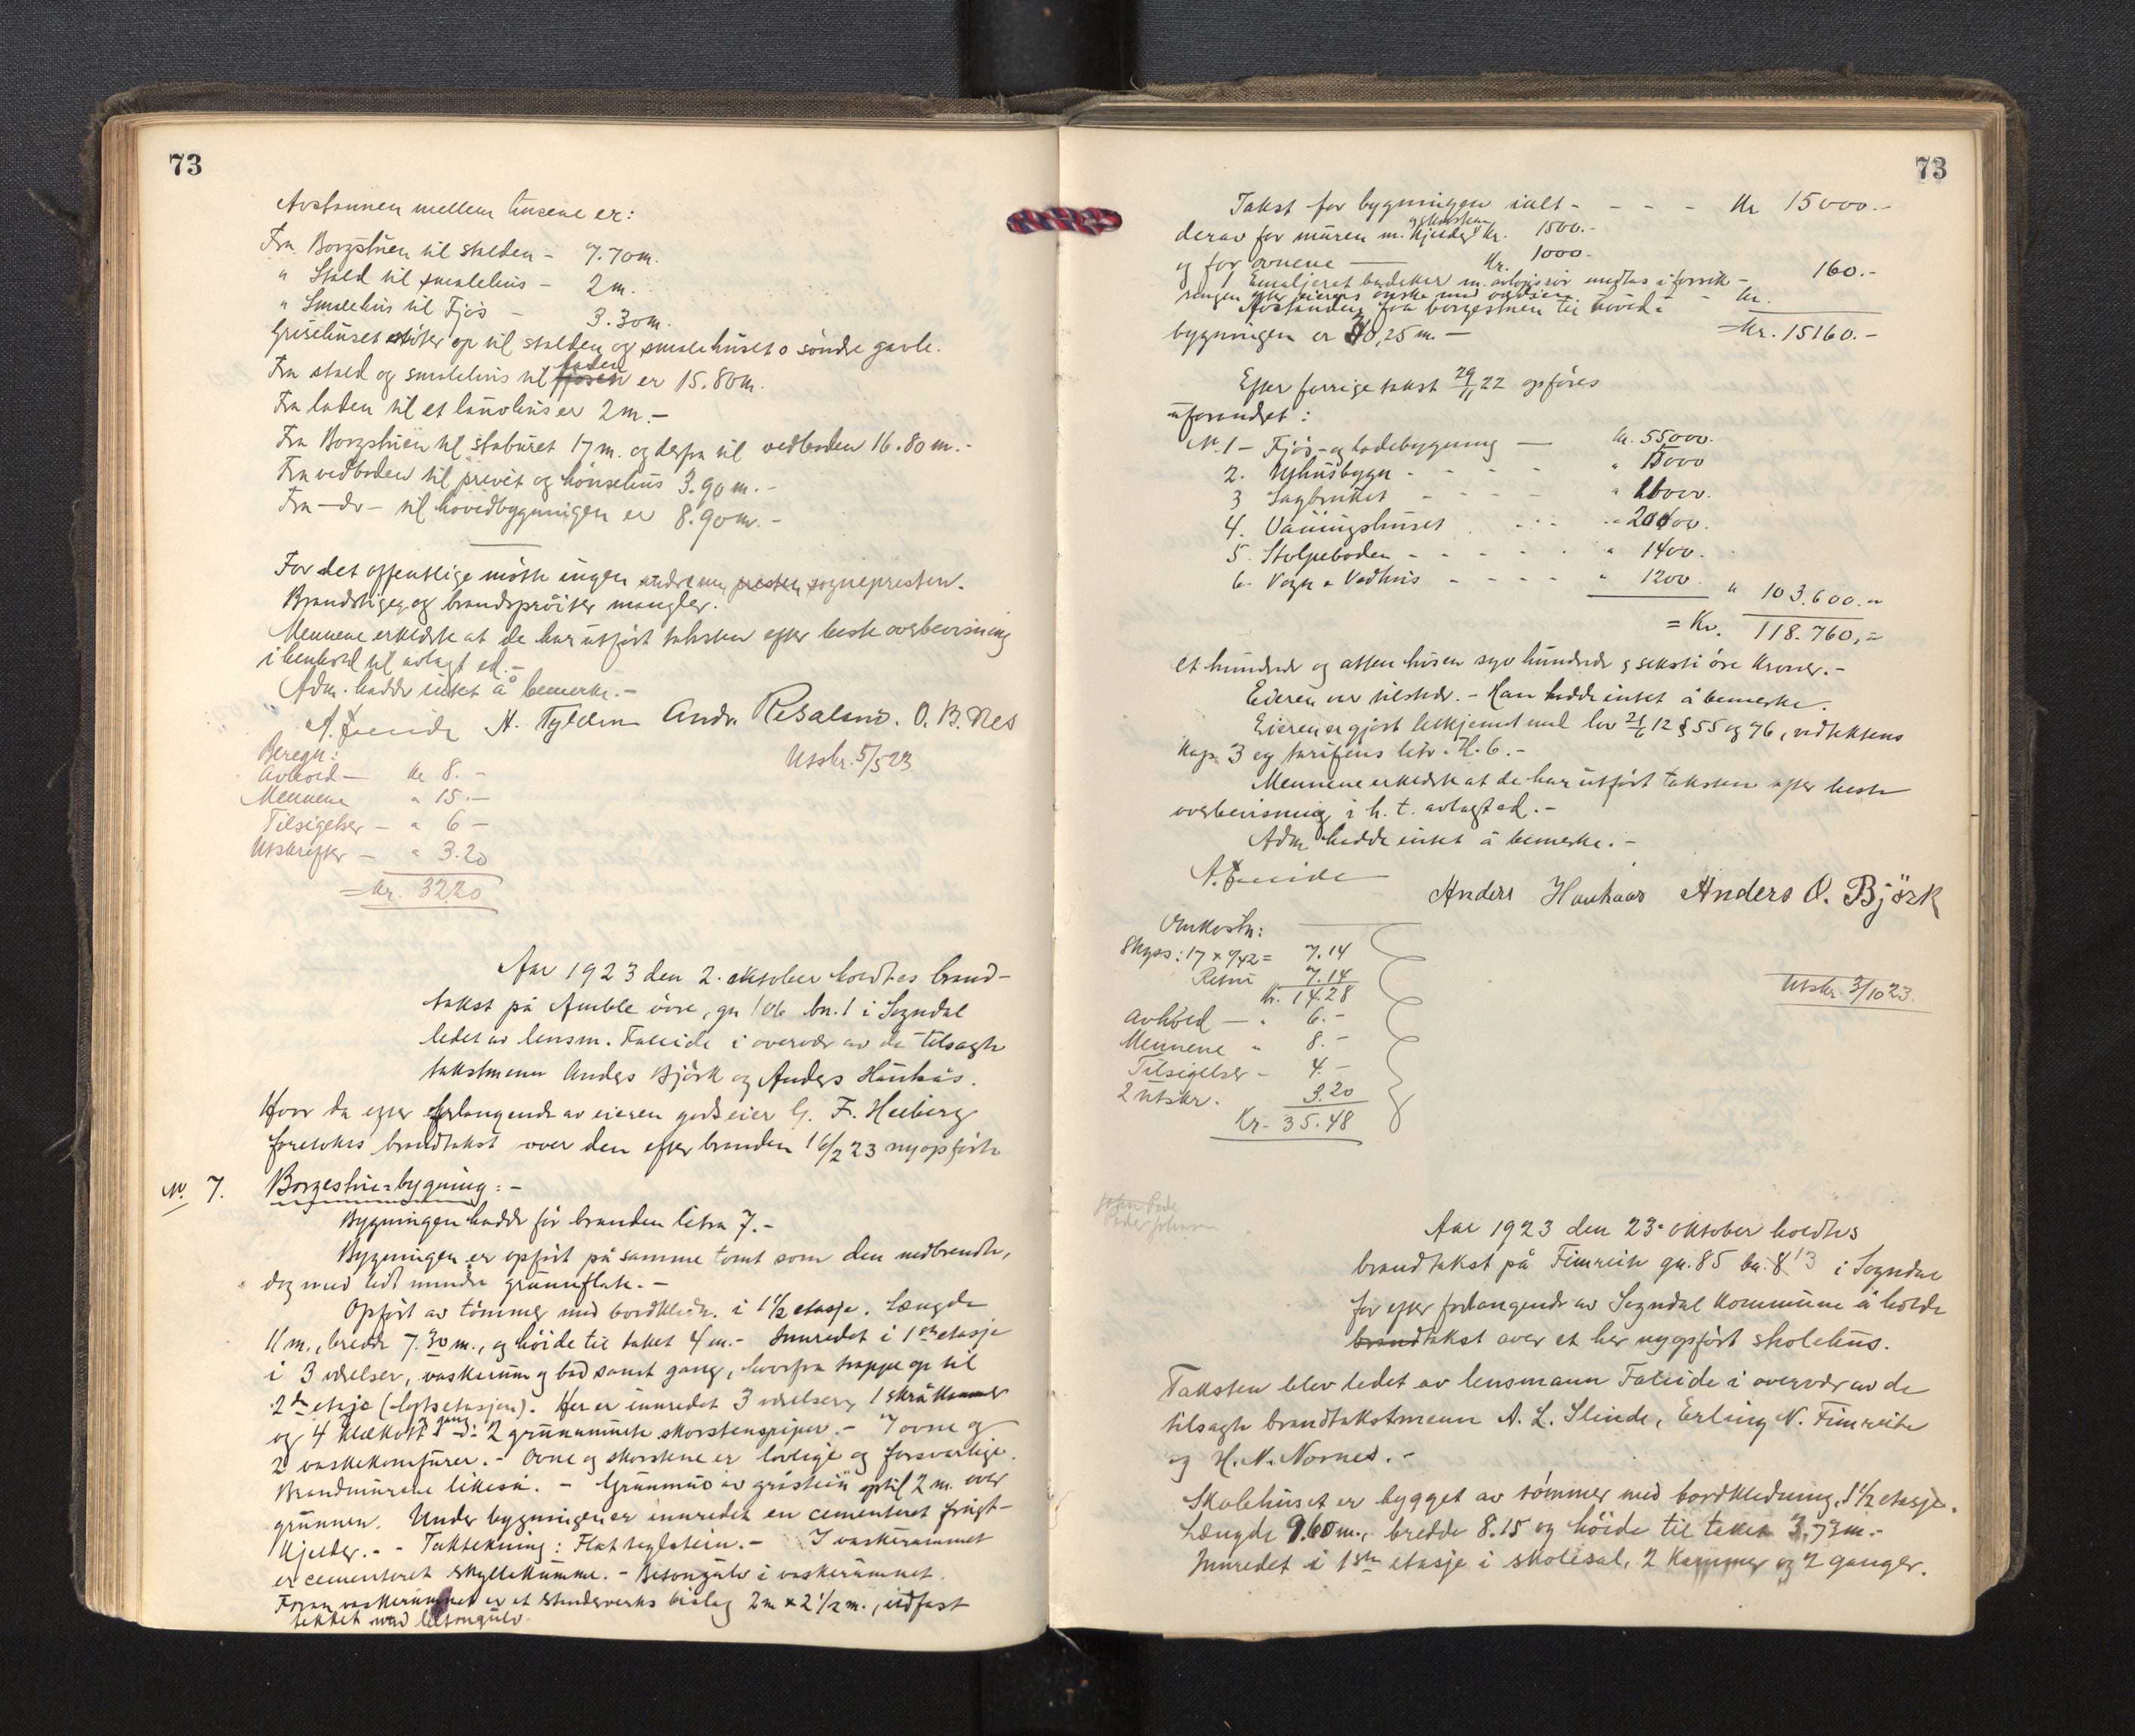 73
Avstannen mellem husene er:
Fra Borgstuen til stalden - 7.70m.
" Stald til smalehus - 2m.
" Smalehus til Fjös - 3.30m.
Grisehuset støter op til stalden og smalehusets söndre gavle.
Fra stald og smalehus til fjösen laden er 15.80m.
Fra laden til et løuvhus er 2m.-
Fra Borgstuen til staburet 17m. og derfra til vedboden 16.80m.-
Fra vedboden til privèt og hönsehus 3.90m.-
Fra -do- til hovedbygningen er 8.90m.-
For det offentlige mötte ingen andre enn presten sognepresten.
Brandstiger og brandspröiter mangler.
Mennene erklærte at de har utfört taksten efter beste overbevisning
i henhold til avlagt ed.-
Adm. hadde intet å bemerke.-
A. Faleide N. Tylden Andr. Risalund. O. B. Nes
Utskr. 5/5 23
Beregn:
Avhold - Kr 8.-
Mennene " 15.-
Tilsigelser - " 6 -
Utskrifter - " 3.20
= Kr. 32.20
Aar 1923 den 2. oktober holdtes brand-
takst på Amble övre, gn 106 bn. 1 i Sogndal
ledet av lensm. Faleide i overvær av de tilsagte
takstmenn Anders Björk og Anders Haukås.
Hvor da efter forlangende av eieren godseier G. F. Heiberg
foretokes brandtakst over den efter branden 16/2 23 nyopförte
No. 7. Borgestue=bygning:-
Bygningen hadde för branden litra 7.-
Bygningen er opfört på samme tomt som den nedbrendte,
dog med litt mindre grunnflate.-
Opfört av tömmer med bordklædn. i 1½ etasje. Længde
11 m., bredde 7.30 m., og höide til taket 4 m.- Innredet i 1ste etasje
i 3 værelser, vaskerum og bad samt gang, hvorfra trappe op til
2den etasje (loftsetasjen). Her er innredet 3 værelser, 1 skråkammer
og 4 klækott og gang.- 2 grunnmurte skorstenspiper.- 7 ovne og
2 vaskekomfürer.- Ovne og skorstene er lovlige og forsvarlige.
Brandmurene likeså.- Grunnmur av gråstein optil 2 m. over
grunnen. Under bygningen er innredet en cementeret frugt-
kjelder.- - Taktekning: Flat teglstein.- I vaskerummet
er cementeret skyllekumme.- Betongulv i vaskerummet.
Foran vaskerummet er et stenderverks bislag 2m x 2½ m., ildfast
tekket med betongulv.
73
Takst for bygningen ialt - - - - Kr 15000.-
derav for muren m. kjelder og skorsten Kr. 1500.-
og for ovnene Kr. 1000.-
1 Emaljeret badekar m. avløpsrör medtas i forsik-
ringen efter eierens önske med værdien - kr. 160.-
Avstanden fra borgestuen til hoved-
bygningen er 10,25 m.- Kr. 15160.-
Efter forrige takst 29/11 22 opföres
uforandret:
No. 1 - Fjös- og ladebygning - kr. 55000.
2. Nyhusbygn - - - - " 15000
3 Sagbruket - - - - " 11000.
4. Vaaningshuset - - - " 20000.
5. Stolpeboden - - - - " 1400.
6. Vogn & Vedhus - - - - " 1200. " 103.600.-
= Kr. 118.760,=
Et hundrede og atten tusen syv hundrede og seksti öre kroner.-
Eieren var tilstede.- Han hadde intet å bemerke.
Eieren er gjort bekjennt med lov 21/6 12 § 55 og 76, vedtektens
Kap. 3 og tarifens litr. H. 6.-
Mennene erklærte at de har utfört taksten efter beste
overbevisning i h. t. avlagt ed.-
Adm. hadde intet å bemerke.-
A. Faleide Anders Haukaas Anders O. Björk
Omkostn:
Skyss: 17 x 0/42 = 7.14
Retur 7.14
Kr. 14.28
Avhold - " 6.-
Mennene " 8.-
Tilsigelser - 4.-
2 utskr. 3.20
Kr. 35.48
Utskr. 3/10 23.
John Peder
Peder Johnson
Aar 1923 den 23. oktober holdtes
brandtakst på Fimreite gn. 85 bn. 8 13 i Sogndal
for efter forlangende av Sogndal Kommune å holde
brandtakst over et her nyopfört skolehus.
Taksten blev ledet av lensmann Faleide i overvær av de
tilsagte brandtakstmenn A. L. Slinde, Erling N. Fimreite
og H. N. Nornes.-
Skolehuset er bygget av tömmer med bordklædning, 1½ etasje.
Længde 9.60 m., bredde 8.15 og höide til taket 3.73m.-
Innredet i 1ste etasje i skolesal, 2 Kammer og 2 ganger.